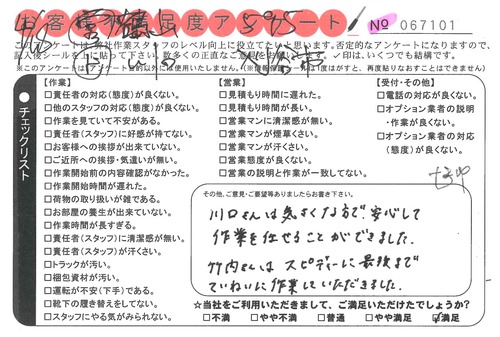 お客様満足度アンケート
No 067101
このアンケートは弊社作業スタッフのレベル向上に役立てたいと思います。否定的なアンケートになりますので、
記入後シールを上に貼って下さい。数多くの正直なご意見をお待ちしております。✓印は、いくつでも結構です。
●チェックリスト
【作業】
□責任者の対応(態度)が良くない。
□他のスタッフの対応(態度)が良くない。
□作業を見ていて不安がある。
□責任者(スタッフ)に好感が持てない。
□お客様への挨拶が出来ていない。
□ご近所への挨拶・気遣いが無い。
□作業開始前の内容確認がなかった。
□作業開始時間が遅れた。
□荷物の取り扱いが雑である。
□お部屋の養生が出来ていない。
□作業時間が長すぎる。
□責任者(スタッフ)に清潔感が無い。
□責任者(スタッフ)が汗くさい。
□トラックが汚い。
□梱包資材が汚い。
□運転が不安(下手)である。
□靴下の履き替えをしてない。
□スタッフにやる気がみられない。
【営業】
□見積もり時間に遅れた。
□見積もり時間が長い。
□営業マンに清潔感が無い。
□営業マンが煙草くさい。
□営業マンが汗くさい。
□営業態度が良くない。
□営業の説明と作業が一致してない。
【受付・その他】
□電話の対応が良くない。
□オプション業者の説明
・作業が良くない。
□オプション業者の対応
(態度)が良くない。
その他、ご意見・ご要望等ありましたらお書き下さい。
川口さんは気さくな方で、安心して
作業を任せることができました。
竹内さんは スピーディーに最後まで
ていねいに作業していただきました。
☆当社をご利用いただきまして、ご満足いただけたでしょうか?
□不満 □やや不満 □普通 □やや満足 ☑満足